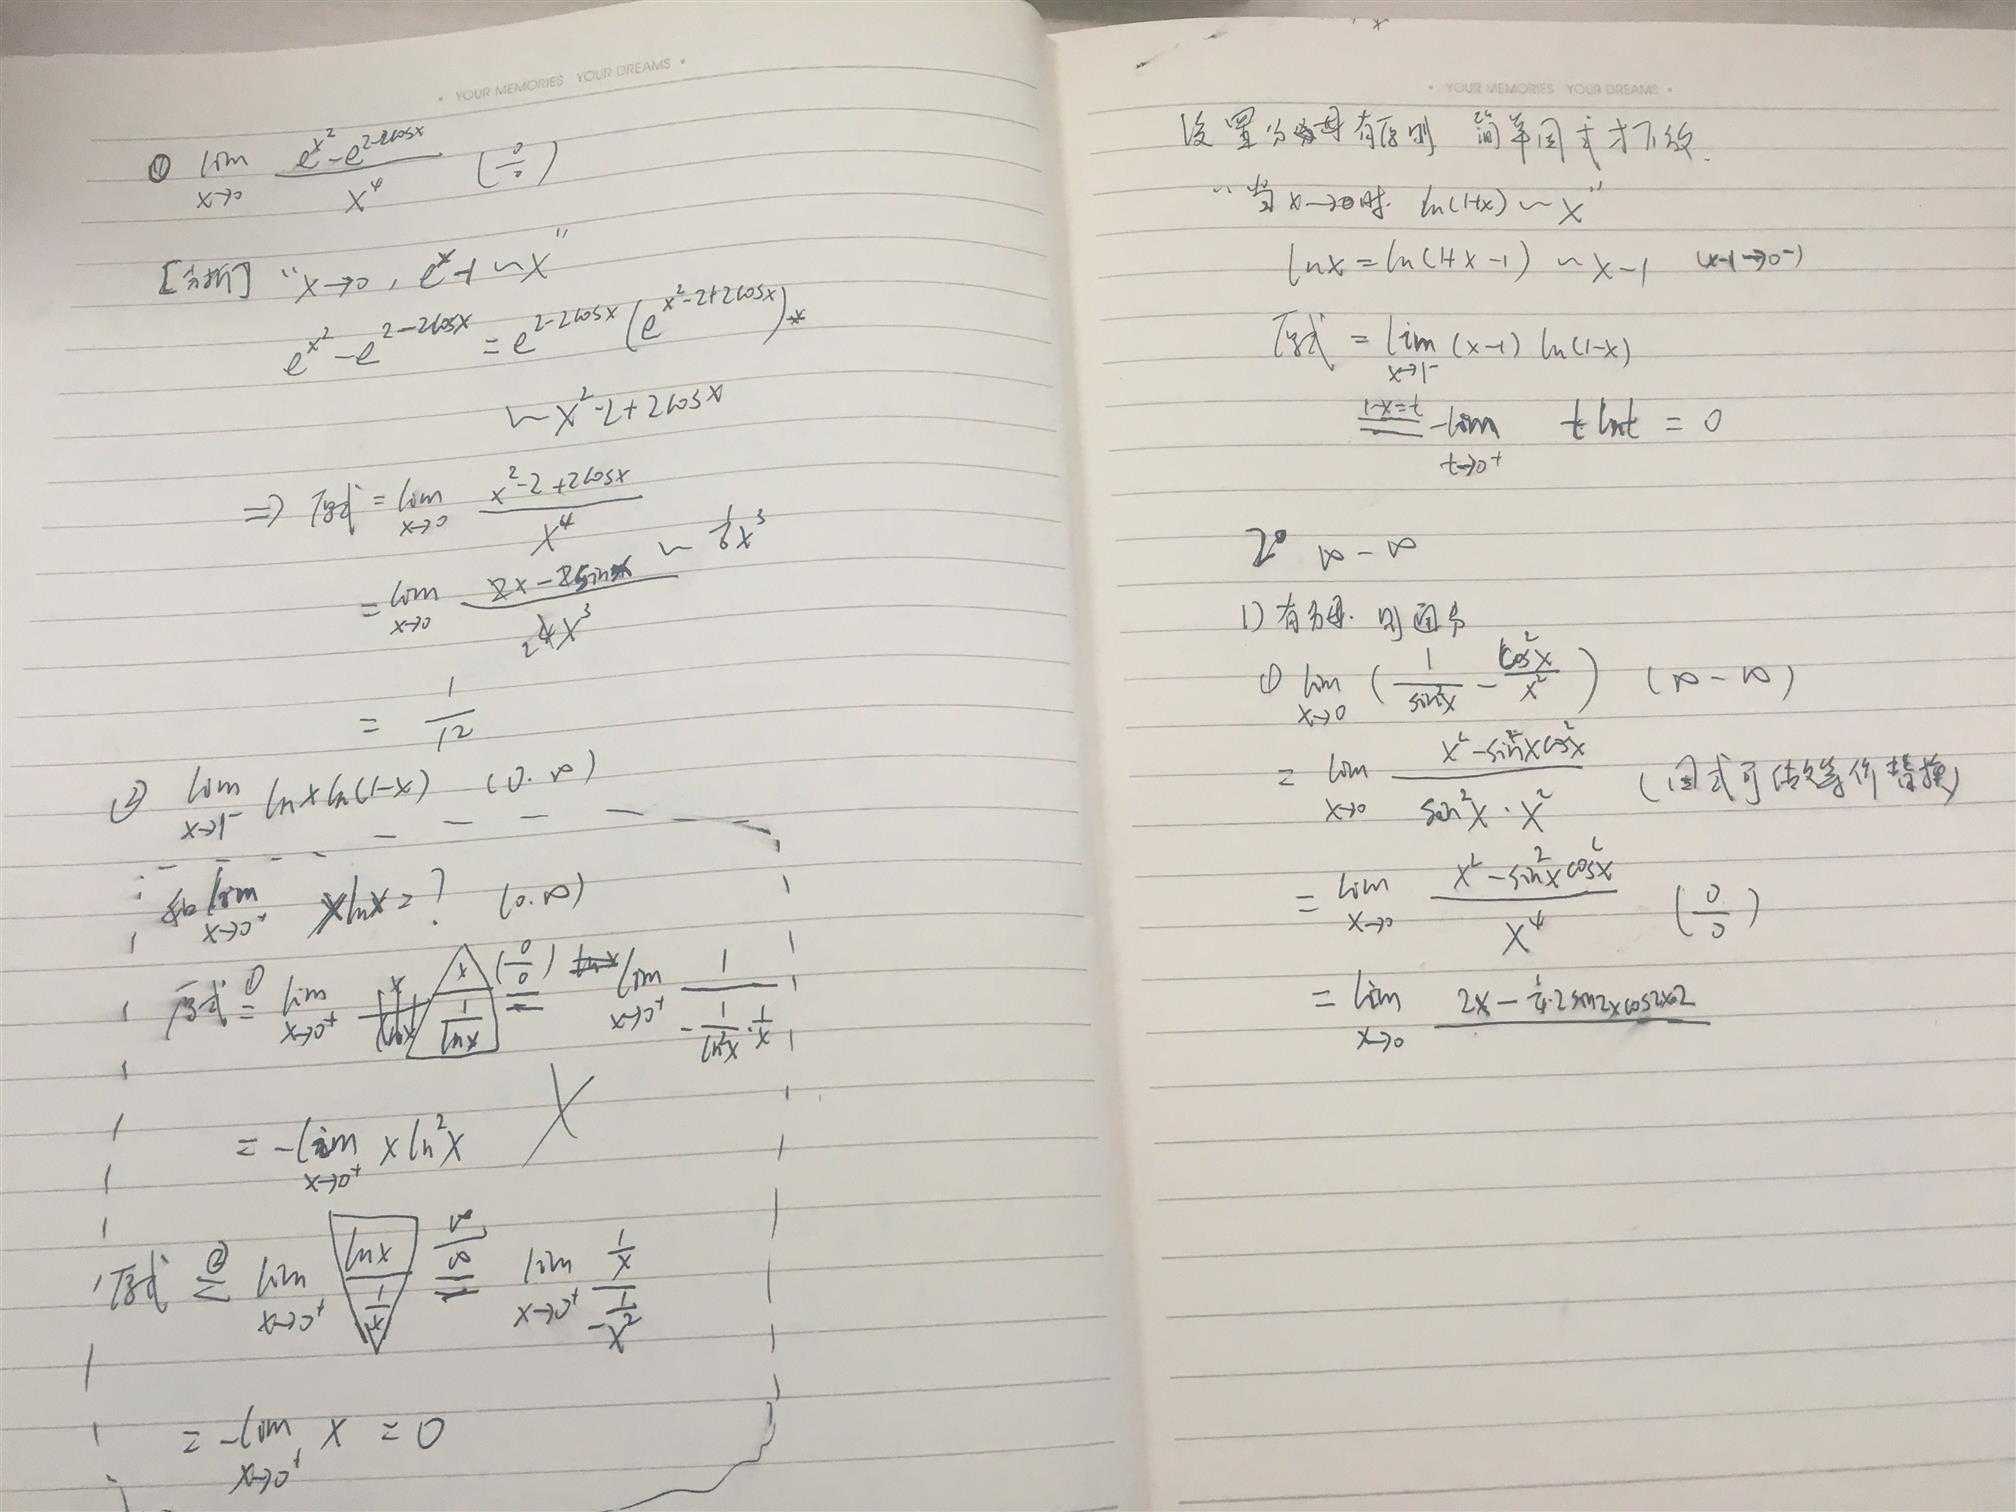 • YOUR MEMORIES YOUR DREAMS •
① lim x→0 (e^{x²} - e^{2-2cosx}) / x⁴ (0/0)
[分析] “x→0, e^x-1 ~ x”
e^{x²} - e^{2-2cosx} = e^{2-2cosx} (e^{x²-2+2cosx})
~ x²-2+2cosx
⇒ 原式 = lim x→0 (x²-2+2cosx) / x⁴
= lim x→0 (2x-2sinx) / 4x³ ~ 1/6 x³
= 1/12
② lim x→1⁻ lnx ln(1-x) (0·∞)
如 lim x→0⁺ xlnx = ? (0·∞)
原式 ①= lim x→0⁺ x / (1/lnx) (0/0)= lim x→0⁺ 1 / (-1/ln²x · 1/x)
= -lim x→0⁺ x ln²x ×
原式 ②= lim x→0⁺ lnx / (1/x) ∞/∞= lim x→0⁺ (1/x) / (-1/x²)
= -lim x→0⁺ x = 0
• YOUR MEMORIES YOUR DREAMS •
设置分母有原则 简单因式才下放.
“当x→0时. ln(1+x) ~ x”
lnx = ln(1+x-1) ~ x-1 (x-1→0⁻)
原式 = lim x→1⁻ (x-1) ln(1-x)
1-x=t = -lim t→0⁺ t lnt = 0
2° ∞-∞
1) 有分母. 则通分
① lim x→0 (1/sin²x - cos²x/x²) (∞-∞)
= lim x→0 (x²-sin²xcos²x) / (sin²x·x²) (因式可做等价替换)
= lim x→0 (x²-sin²xcos²x) / x⁴ (0/0)
= lim x→0 2x - 1/4·2sin2xcos2x·2